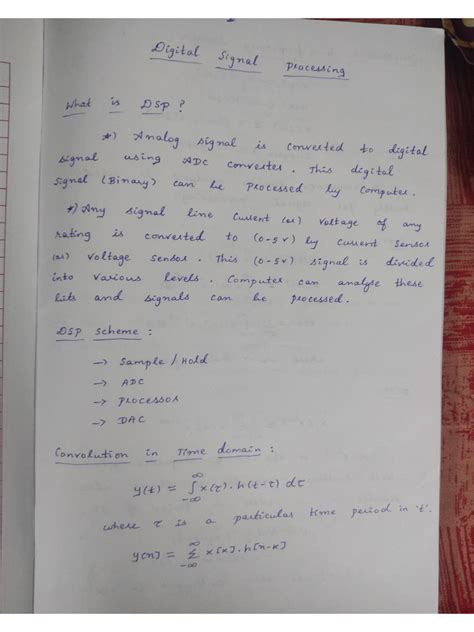 Digital Signal Processing
What is DSP ?
*) Analog signal is converted to digital
signal using ADC converter. This digital
signal (Binary) can be processed by computer.
*) Any signal line current (or) voltage of any
rating is converted to (0-5v) by current sensor
(or) voltage sensor. This (0-5v) signal is divided
into various levels. Computer can analyse these
bits and signals can be processed.
DSP scheme :
→ Sample / Hold
→ ADC
→ Processor
→ DAC
Convolution in Time domain :
y(t) = ∫_{-∞}^{∞} x(τ). h(t-τ) dτ
where τ is a particular time period in 't'.
y[n] = Σ_{-∞}^{∞} x[k]. h[n-k]